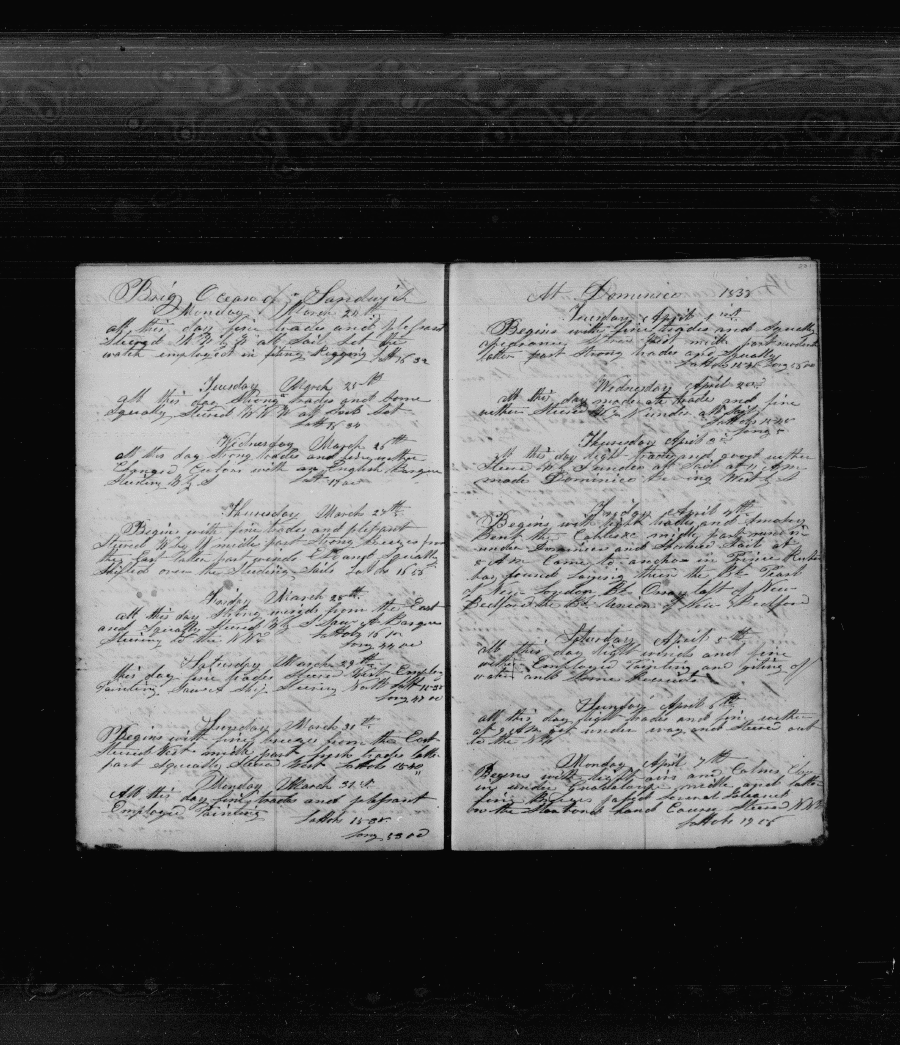 Brig Ocean of Sandwich
Monday March 24th
all this day fine trades and plesant
Stered W by N all Sail Set the
watch employed in fiting Rigging Latt 16 32
Tuesday March 25th
all this day Strong trades and Some
Squaly Stered W by N all Sail Set
Latt 16 34
Wednesday March 26th
all this day strong trades and fair wether
Changed Colors with an English Barque
Steering W by S Latt
Thursday March 27th
Begins with fine trades and plesant
Stered W by N midle part Strong breezes from
the East latter part winds and Squaly
Shifted over the Studing Sails Latt ob 15 55
Friday March 28th
all this day Strong winds from the East
and Squaly Stered W by S Spoy A Barque
Steering to the NW Latt ob 15 10
Long 44 00
Saturday March 29th
this day fine trades Stered West Employ
Painting Saw A Ship Steering North Latt
Long 47 00
Sunday March 30th
Begins with fine breezes from the East
Stered West midle part fresh trades latter
part Squaly Stered West Latt ob 15 40
Monday March 31st
All this day fine trades and plesant
Employed Painting Latt ob 15
Long 53 00
At Dominico 1833
Tuesday April 1st
Begins with fine trades and Squaly
apearance Stered West midle part
latter part Strong trades and Squaly
Latt ob 15 Long 55 00
Wednesday April 2nd
all this day moderate trades and fine
wether Stered W by N under all Sail
Latt ob 15
Long
Thursday April 3rd
all this day light trades and good wether
Stered W by S under all Sail at 11 A m
made Dominico bearing West by S
Friday April 4th
Begins with light trades and Smokey
bent the Cables midle part run in
under Dominico and Shortned Sail at
8 A m Came to anchor in Prince Ruperts
bay found Laying there the Bk Pearl
of New London Bk of New
Bedford the Bk of New Bedford
Saturday April 5th
all this day light winds and fine
wether Employed Painting and giting of
water and Some
Sunday April 6th
all this day light trades and fine wether
at 9 A m got under way and Stered out
to the NW
Monday April 7th
Begins with light airs and Calms
in under Guadaloupe midle and latter
fine Breezes
on the Starboard hand Course Stered NNW
Latt ob 17 15